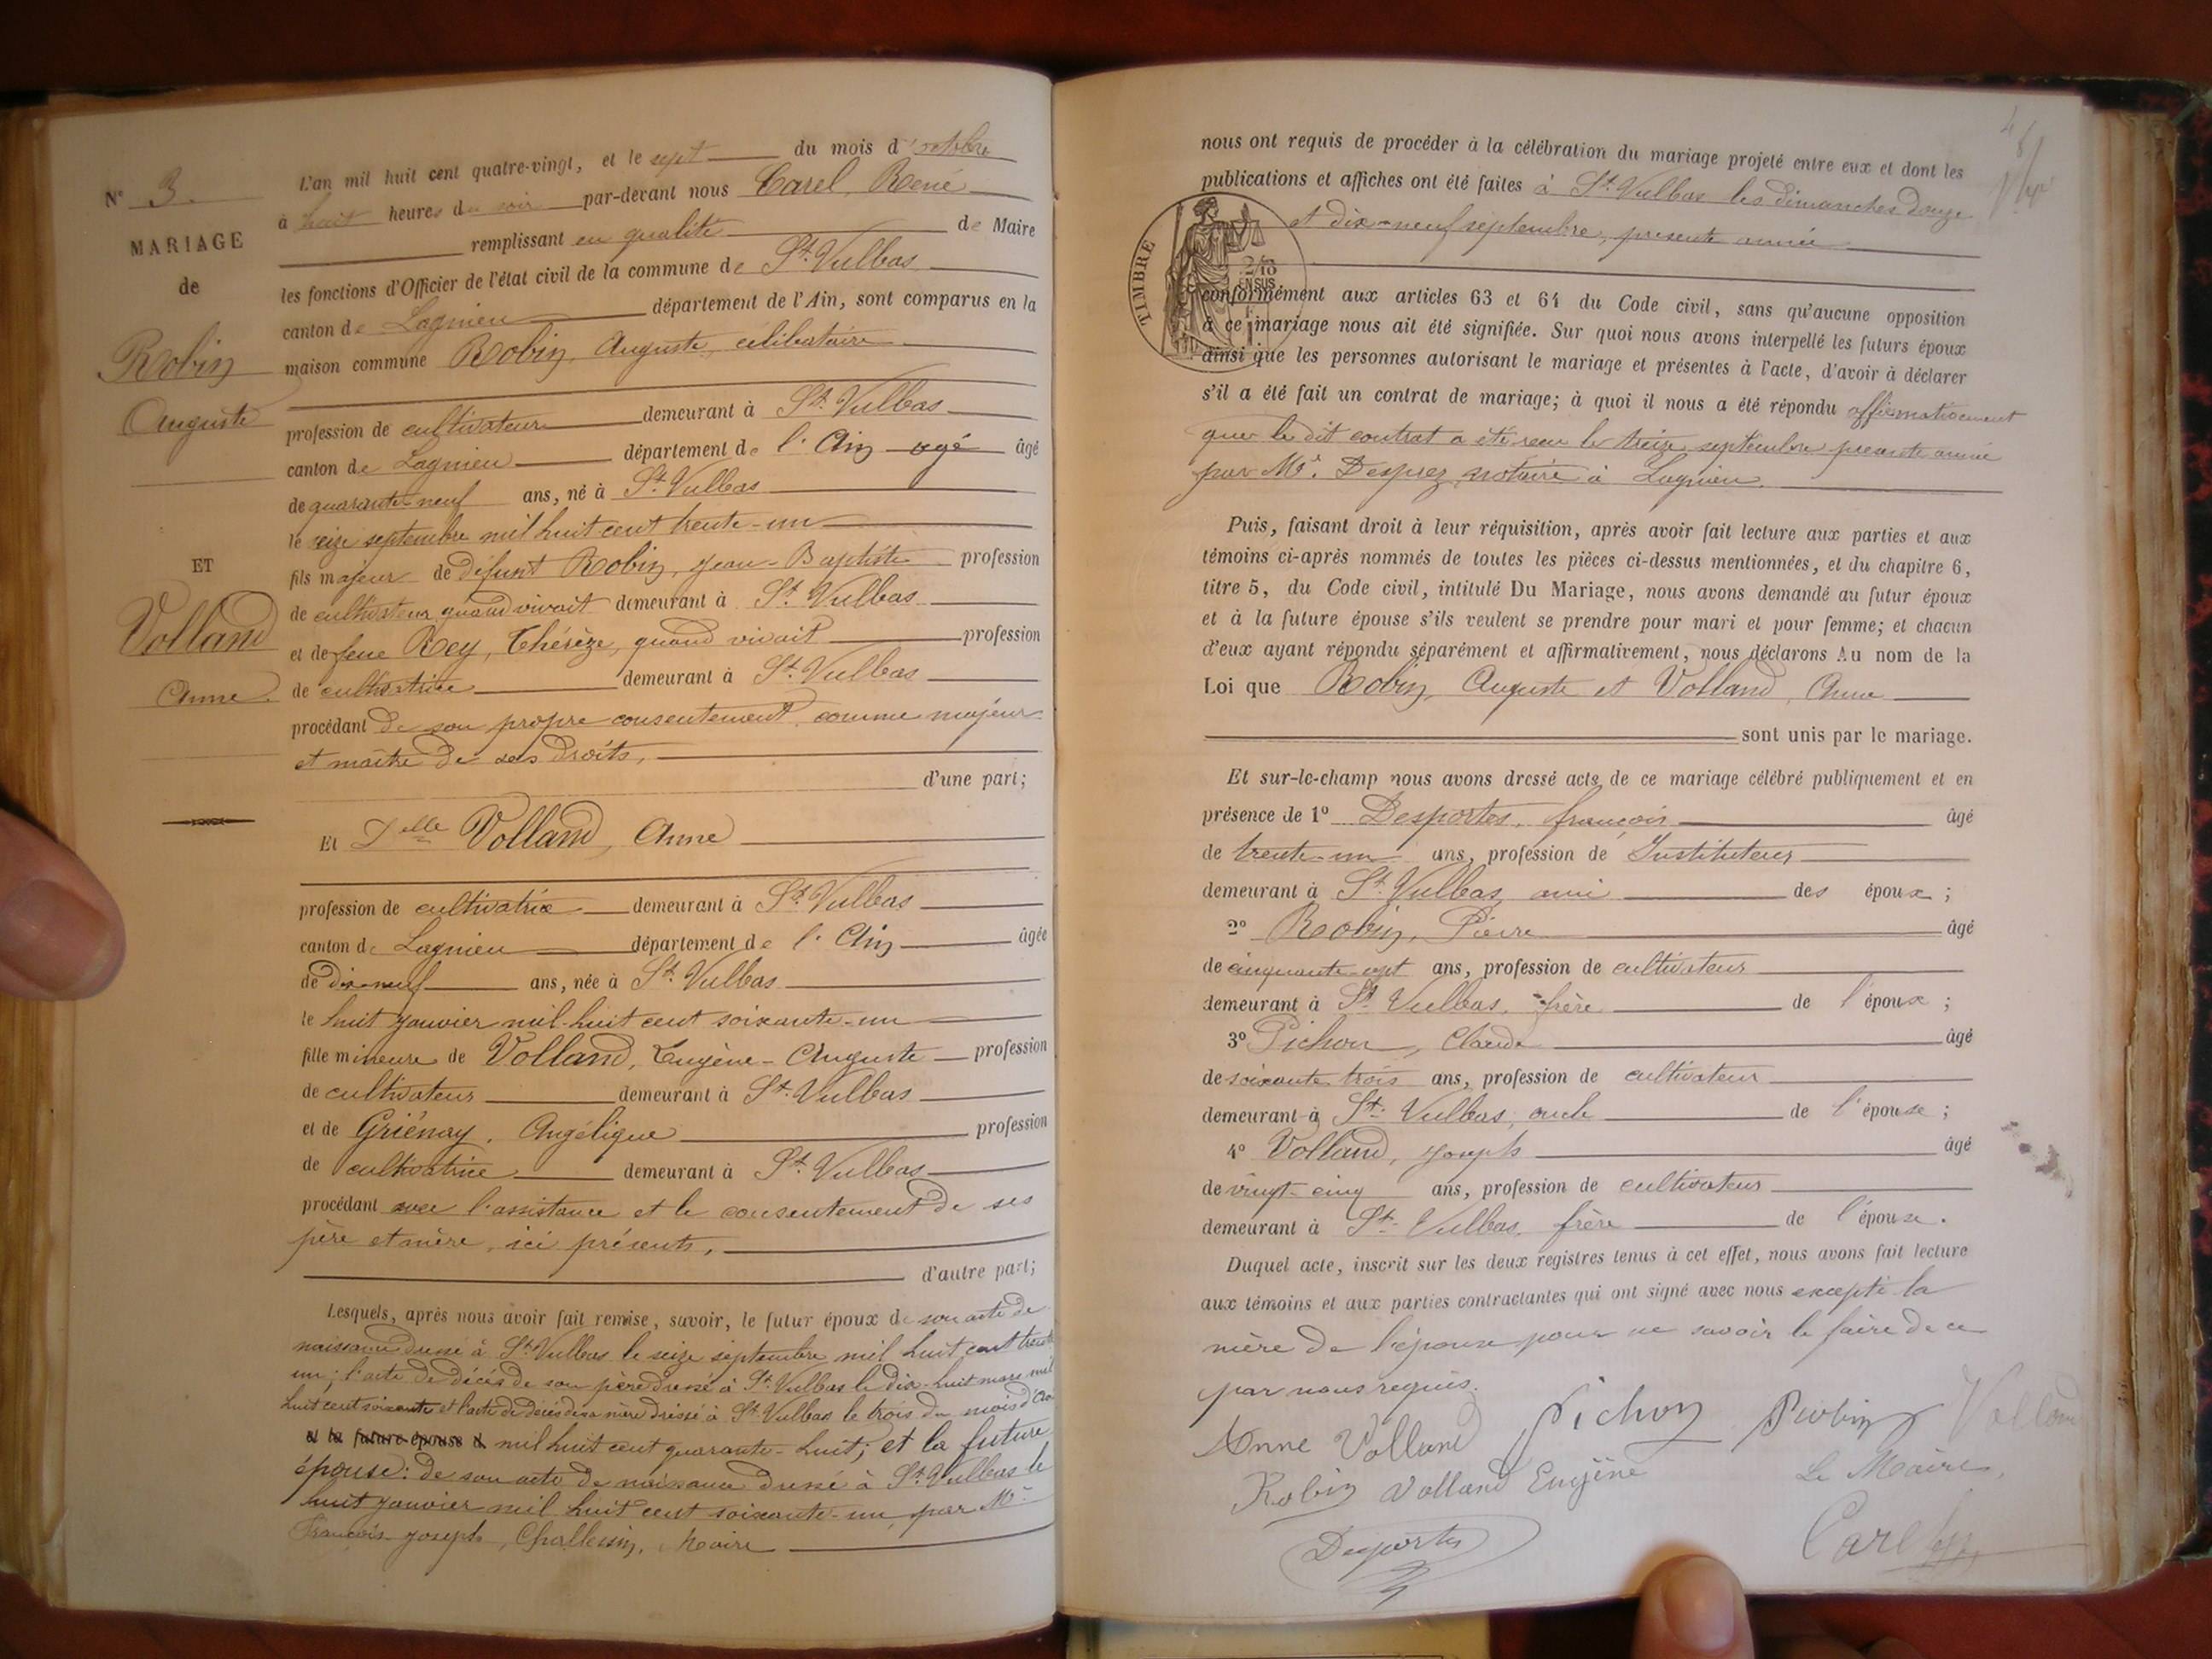 N° 3.
MARIAGE
de
Robin
Auguste
ET
Volland
Anne.
L'an mil huit cent quatre-vingt, et le sept du mois d'octobre
à huit heures du soir par-devant nous Carel, René
remplissant en qualité de Maire
les fonctions d'Officier de l'état civil de la commune de St. Vulbas
canton de Lagnieu département de l'Ain, sont comparus en la
maison commune Robin, Auguste, célibataire
profession de cultivateur demeurant à St. Vulbas
canton de Lagnieu département de l'Ain agé âgé
de quarante-neuf ans, né à St. Vulbas
le seize septembre mil huit cent trente-un
fils majeur de défunt Robin, Jean-Baptiste profession
de cultivateur quand vivait demeurant à St. Vulbas
et de feue Rey, Thérèze, quand vivait profession
de cultivatrice demeurant à St. Vulbas
procédant de son propre consentement comme majeur
et maître de ses droits,
d'une part;
Et Delle Volland, Anne
profession cultivatrice demeurant à St. Vulbas
canton de Lagnieu département de l'Ain âgée
de dix-neuf ans, née à St. Vulbas
le huit janvier mil-huit cent soixante-un
fille mineure de Volland, Eugène-Auguste profession
de cultivateur demeurant à St. Vulbas
et de Griénay, Angélique profession
de cultivatrice demeurant à St. Vulbas
procédant avec l'assistance et le consentement de ses
père et mère, ici présents,
d'autre part;
Lesquels, après nous avoir fait remise, savoir, le futur époux de son acte de
naissance dressé à St. Vulbas le seize septembre mil huit cent trente
un; l'acte de décès de son père dressé à St. Vulbas le dix-huit mars mil
huit cent soixante et l'acte de décès de sa mère dressé à St. Vulbas le trois du mois d'
et la future épouse d mil huit cent quarante-huit; et la future
épouse: de son acte de naissance dressé à St. Vulbas le
huit janvier mil huit cent soixante-un, par Mr.
François-Joseph, Maire
nous ont requis de procéder à la célébration du mariage projeté entre eux et dont les
publications et affiches ont été faites à St. Vulbas les dimanches douze
et dix-neuf septembre, présente année
TIMBRE
conformément aux articles 63 et 64 du Code civil, sans qu'aucune opposition
à ce mariage nous ait été signifiée. Sur quoi nous avons interpellé les futurs époux
ainsi que les personnes autorisant le mariage et présentes à l'acte, d'avoir à déclarer
s'il a été fait un contrat de mariage; à quoi il nous a été répondu affirmativement
que le dit contrat a été reçu le treize septembre présente année
par Me. Desprez notaire à Lagnieu.
Puis, faisant droit à leur réquisition, après avoir fait lecture aux parties et aux
témoins ci-après nommés de toutes les pièces ci-dessus mentionnées, et du chapitre 6,
titre 5, du Code civil, intitulé Du Mariage, nous avons demandé au futur époux
et à la future épouse s'ils veulent se prendre pour mari et pour femme; et chacun
d'eux ayant répondu séparément et affirmativement, nous déclarons Au nom de la
Loi que Robin, Auguste et Volland, Anne
sont unis par le mariage.
Et sur-le-champ nous avons dressé acte de ce mariage célébré publiquement et en
présence de 1° Desportes, françois âgé
de trente-un ans, profession de Instituteur
demeurant à St. Vulbas, ami des époux;
2° Robin, Pierre âgé
de cinquante-sept ans, profession de cultivateur
demeurant à St. Vulbas, frère de l'époux;
3° Pichon, Claude âgé
de soixante trois ans, profession de cultivateur
demeurant à St. Vulbas, oncle de l'épouse;
4° Volland, Joseph âgé
de vingt-cinq ans, profession de cultivateur
demeurant à St. Vulbas, frère de l'épouse.
Duquel acte, inscrit sur les deux registres tenus à cet effet, nous avons fait lecture
aux témoins et aux parties contractantes qui ont signé avec nous excepté la
mère de l'épouse pour ne savoir le faire de ce
par nous requis.
Anne Volland Pichon Robin Volland
Robin Volland Eugène Le Maire,
Desportes Carel